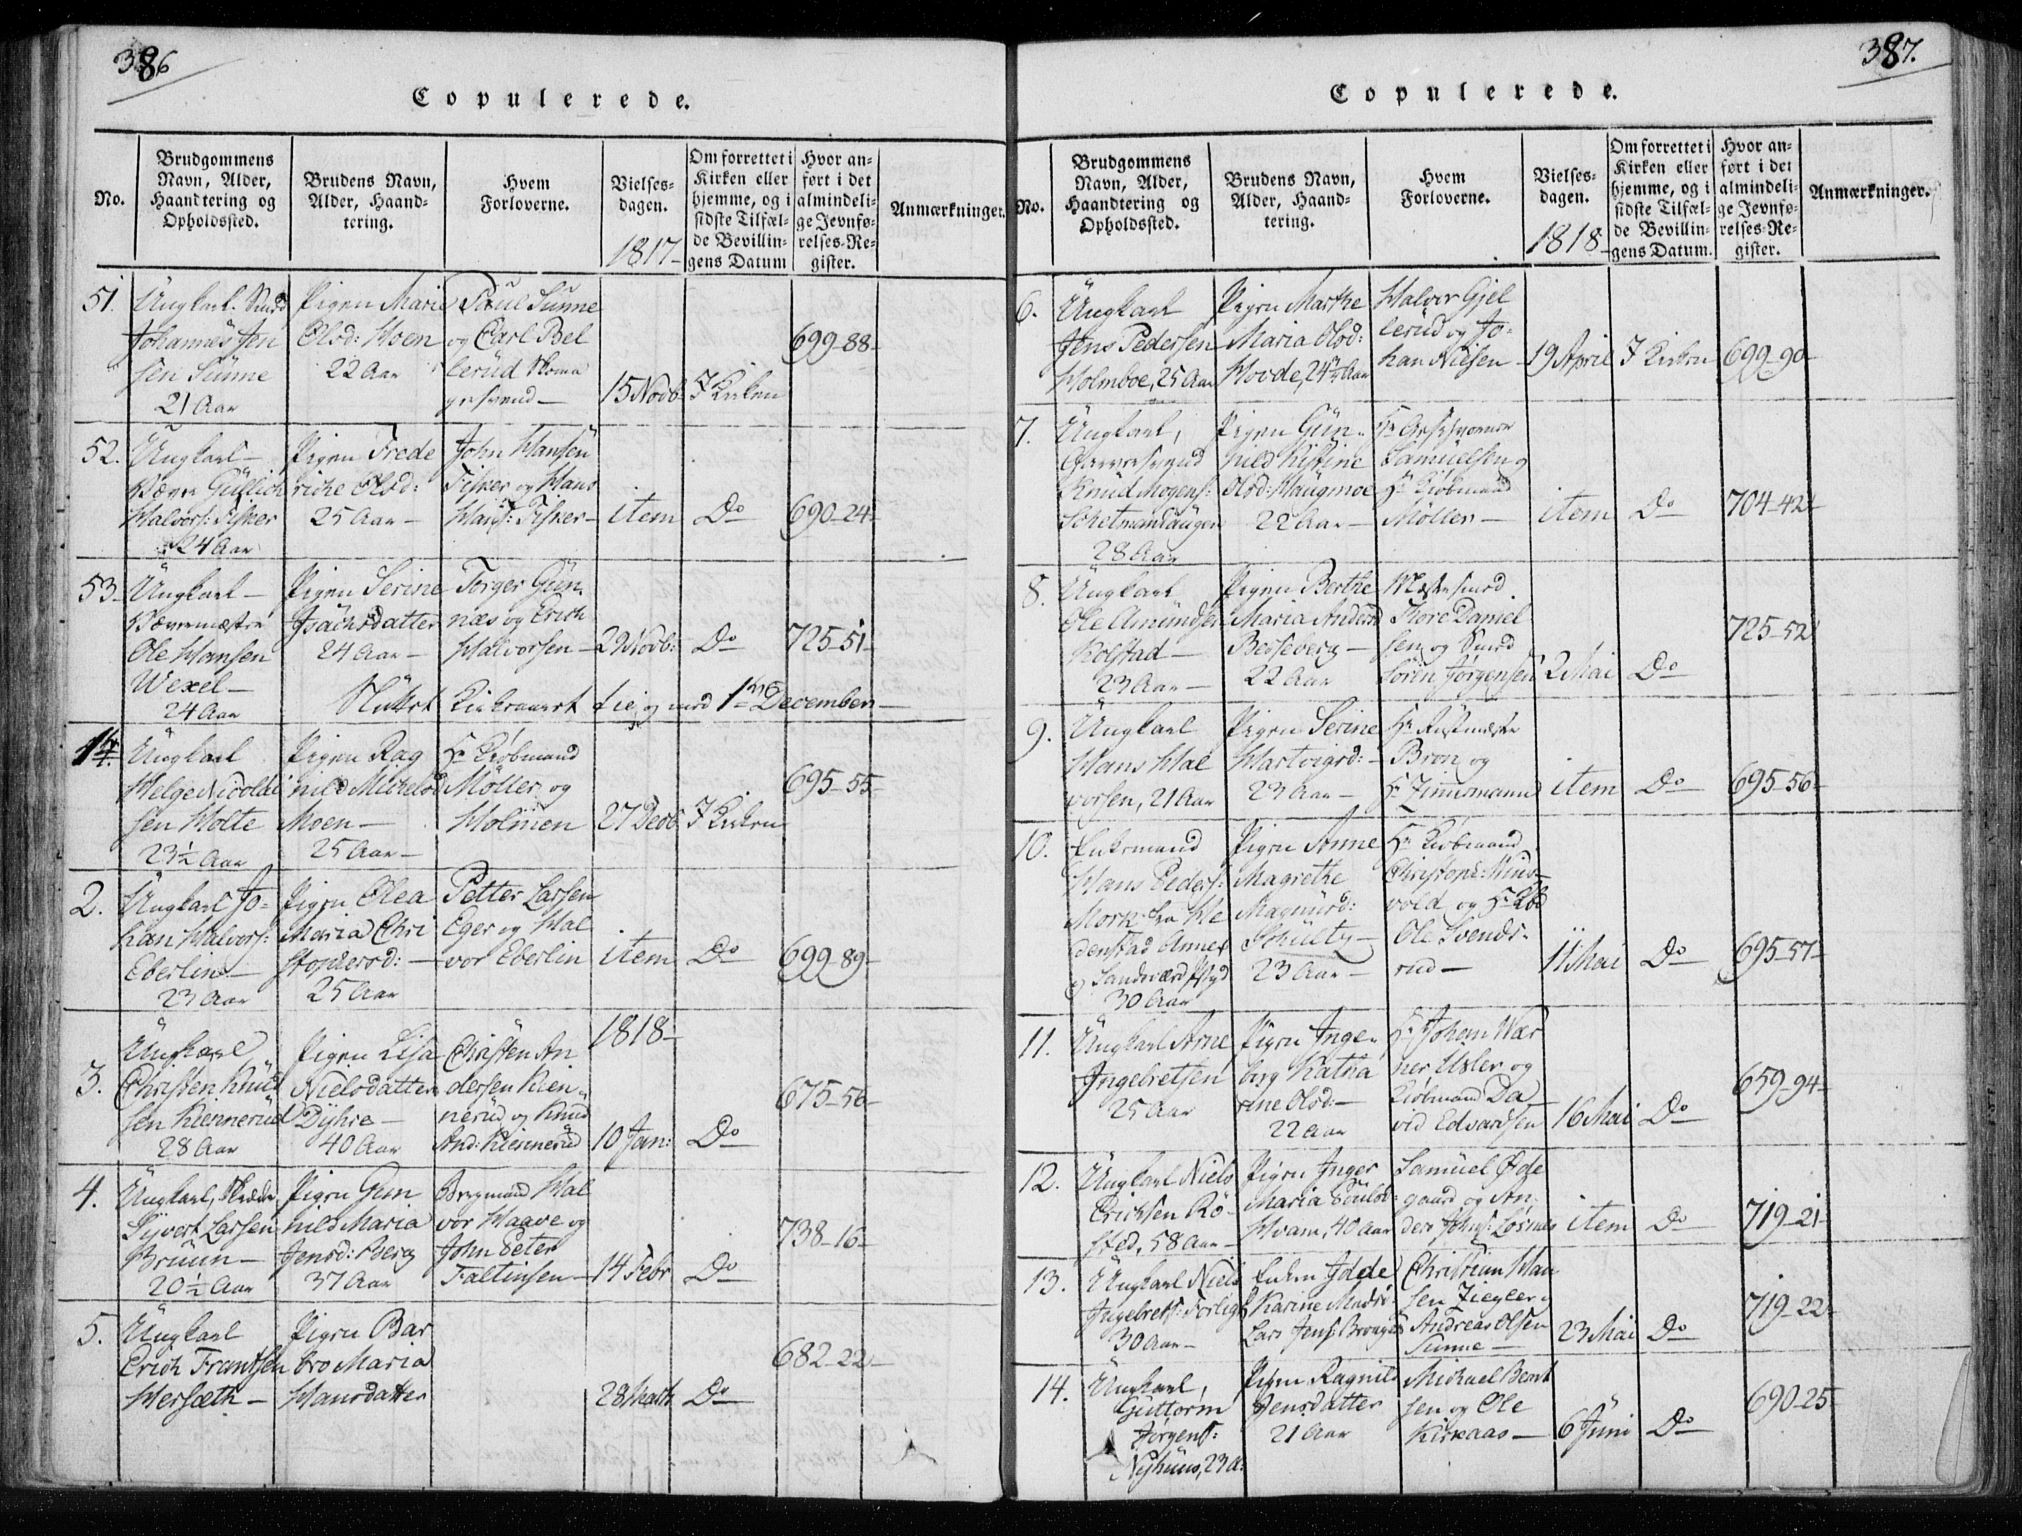 386
Copulerede.
No.
Brudgommens
Navn, Alder,
Haandtering og
Opholdssted.
Brudens Navn,
Alder, Haand-
tering.
Hvem
Forloverne.
Vielses-
dagen.
1817-
Om forrettet i
Kirken eller
hjemme, og i
sidste Tilfæl-
de Bevillin-
gens Datum
Hvor an-
ført i det
almindeli-
ge Jevnfø-
relses-Re-
gister.
Anmærkninger.
51.
Ungkarl Smed
Johannes Jen
sen Sunne
21 Aar
Pigen Marie
Olsd: Moen
22 Aar
Poul Sunne
og Carl Bel
lerud Skoma
gersvend-
15 Novb:
I Kirken
699-88-
52.
Ungkarl-
Gullich
Halvors: Fisker
24 Aar
Pigen Frede
riche Olsd:
25 Aar-
John Hansen
Fisker og Hans
Hans: Fisker-
item
Do
690-24-
53-
Ungkarl-
Ole Hansen
Wexel-
24 Aar
Pigen Serine
Isachsdatter
24 Aar-
Torger Gun
næs og Erich
Halvorsen-
29 Novb:
Do
725-51-
Sluttet Kirkeaaret die og med 1ste December-
1.
Ungkarl
Helge Nicolai
sen Holte
23½ Aar
Pigen Rag
nild Michelsd
Moen-
25 Aar-
Hr Kiøbmand
Møller og
Holmen
27 Decb
I Kirken
695-55-
2.
Ungkarl Jo-
han Halvors:
Eberlin-
23 Aar
Pigen Olea
Maria Chri
stophersd:-
25 Aar
Petter Larsen
Eger og Hal
vor Eberlin
item
Do
699-89-
1818-
3.
Ungkarl
Christen Knud
sen Kiennerud
28 Aar
Pigen Lisa
Nielsdatter
Dyhre-
40 Aar
Christen An
dersen Kien-
nerud og Knud
And: Kiennerud
10 Jan:
Do
675-56-
4.
Ungkarl, Skræder
Syvert Larsen
Bruun-
20½ Aar
Pigen Gun
nild Maria
Jensd: Berg
37 Aar
Bergmand Hal
vor Haave og
John Peter
Faltinsen-
14 Febr
Do
738-16-
5.
Ungkarl
Erich Frantsen
Hersæth-
Pigen Bar
bro Maria
Hansdatter
28 Marth
Do
682-22-
387.
Copulerede.
No.
Brudgommens
Navn, Alder,
Haandtering og
Opholdssted.
Brudens Navn,
Alder, Haand-
tering.
Hvem
Forloverne.
Vielses-
dagen.
1818-
Om forrettet i
Kirken eller
hjemme, og i
sidste Tilfæl-
de Bevillin-
gens Datum.
Hvor an-
ført i det
almindeli-
ge Jevnfø-
relses-Re-
gister.
Anmærkninger.
6.
Ungkarl
Jens Pedersen
Holmboe, 25 Aar
Pigen Marthe
Maria Olsd:
Hovde, 24½ Aar
Halvor Gjel
lerud og Jo-
han Nielsen-
19 April
I Kirken
699-90-
7.
Ungkarl,
Knud Mogens:
28 Aar
Pigen Gun-
nild Kistine
Olsd: Haugmoe
22 Aar-
Hr Geschworner
Samuelsen og
Hr Kiøbmand
Møller-
item
Do
704-42-
8.
Ungkarl
Ole Amundsen
Kolstad-
23 Aar-
Pigen Berthe
Maria Andersd
Besseberg-
22 Aar
Mestersmed
Tore Daniel
sen og Smed
Søren Jørgensen
2 Mai
Do
725-52
9.
Ungkarl
Hans Hal
vorsen, 21 Aar
Pigen Serine
Hartvigsd:-
23 Aar-
Hr
Bron og
Hr Zimmermann
item
Do
695-56-
10.
Enkemand
Hans Peders:
Mork fra He
denstad Annex
og Sandsværd Pstgd
30 Aar
Pigen Anne
Magrethe
Magnusd:
Schultz-
23 Aar-
Hr Kiøbmand
Christoph: Muns-
vold og Hr Kbd
Ole Svends-
rud-
11 Mai
Do
695-57-
11.
Ungkarl Arne
Ingebretsen
25 Aar
Pigen Inge-
borg Katha
rine Olsd:-
22 Aar
Hr Johan Wær
ner Usler og
Kiøbmand Da
vid Edvardsen
16 Mai
Do
659-94-
12.
Ungkarl Niels
Erichsen Rø-
sted, 58 Aar-
Pigen Inger
Maria Poulsd:
Hvam, 40 Aar
Samuel Øde
gaard og An-
ders Johns: Løsnes
item
Do
719-21-
13.
Ungkarl Niels
Ingebrets:
30 Aar-
Enken Idde
Karine Madsd
Lars Jens:
Christian Han
sen Ziegler og
Andreas Olsen
Sunne-
23 Mai
Do
719-22-
14.
Ungkarl,
Guttorm
Jørgens:
Nyhuus, 23 A:
Pigen Ragnild
Jensdatter
21 Aar
Michael Bent
sen og Ole
Kirkaas-
6 Juni
Do
690-25-